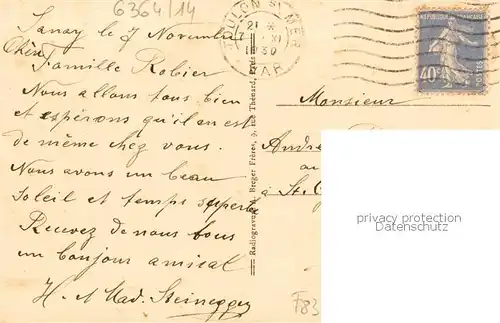 6364/14
Sanary le 7 Novembre
Chère
Famille Robier
Nous allons tous bien
et espérons qu'il en est
de même chez vous.
Nous avons un beau
soleil et temps superbe
Recevez de nous tous
un bonjour amical
H. et Mad. Steinegger
Radiogravure, Breger Frères, 9, rue Thénard, Paris
TOULON S MER
21
7 XI
1930
VAR
REPUBLIQUE FRANÇAISE
40c
POSTES
Monsieur
André
à St.
privacy protection
Datenschutz.
F83